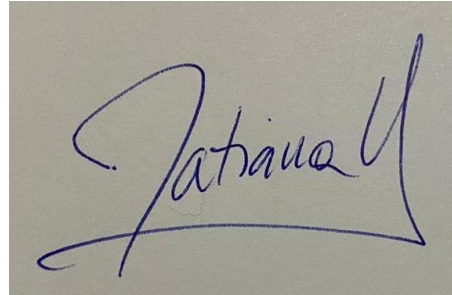 Tatiana U